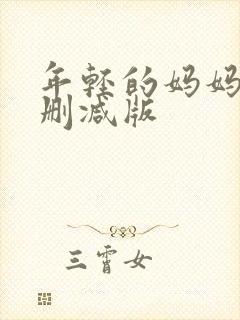 年轻的妈妈
删减版
三霄女